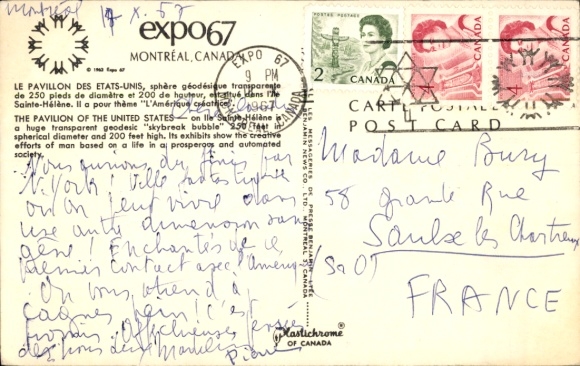 Montréal 17 x. 67
expo67
MONTRÉAL, CANADA
© 1963 Expo 67
LE PAVILLON DES ETATS-UNIS, sphère géodésique transparente
de 250 pieds de diamètre et 200 de hauteur, est situé dans l'île
Sainte-Hélène. Il a pour thème "L'Amérique créatrice".
THE PAVILION OF THE UNITED STATES — on Ile Sainte-Hélène is
a huge transparent geodesic "skybreak bubble" 250 feet in
spherical diameter and 200 feet high. Its exhibits show the creative
efforts of man based on a life in a prosperous and automated
society.
EXPO 67
9 PM
1967
CANADA
POSTES POSTAGE
2
CANADA
4
CANADA
4
CANADA
CARTE POSTALE
POST CARD
LES MESSAGERIES DE PRESSE BENJAMIN LTÉE
BENJAMIN NEWS CO., LTD. MONTREAL, CANADA
par
N. York! Ville fantastique
où on peut vivre dans
une autre dimension sans
gêne! Enchantés de ce
premier contact avec l'Amérique
On vous attend à
Cagnes
Affectueuses pensées
Madame Buisy
58 grande Rue
Saulx les Chartreux
(S O)
FRANCE
Plastichrome®
OF CANADA